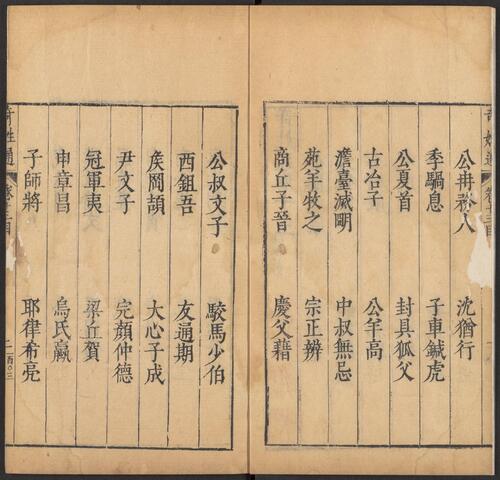 公冉務人
沈猶行
季騧息
子車鍼虎
公夏首
封具狐父
古冶子
公羊高
澹臺滅明
中叔無忌
苑羊牧之
宗正辨
商丘子晉
慶父籍
公叔文子
駮馬少伯
西鉏吾
友通期
侯岡頡
大心子成
尹文子
完顏仲德
冠軍夷
梁丘賀
申章昌
烏氏贏
子師將
耶律希亮
奇姓通